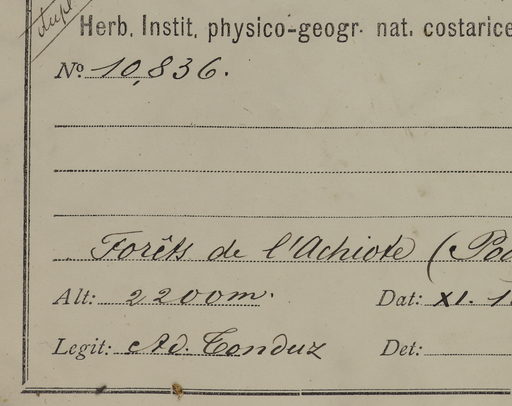 dupl
Herb. Instit. physico-geogr. nat. costarice
Nº 10,836.
Forêts de l'Achiote (Poa
Alt: 2200m. Dat: XI. 1
Legit: Ad. Tonduz Det: